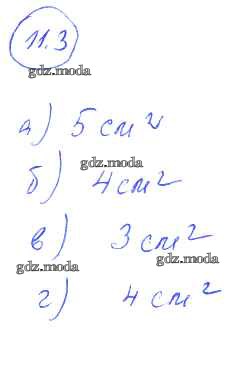 11.3
gdz.moda
а) 5 см²
gdz.moda
б) 4 см²
в) 3 см²
gdz.moda
gdz.moda
г) 4 см²